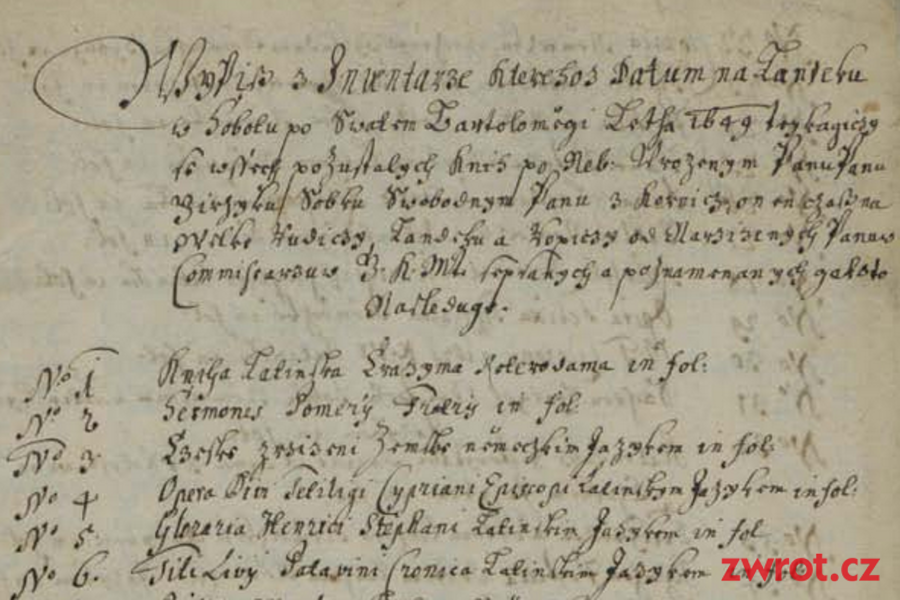 Wypis z Inwentarze kterehoz Datum na Landeku
w Sobotu po Swatem Bartoloměgi Letha 1649
se wssech pozustalych Knih po Neb: Urozenym Panu Panu
Girzyku Sobku Swobodnym Panu z Kornicz, on en czasu na
Welke Rudiczy, Landeku a Kopiczy od Narzizenych Panuw
Commissarzuw sepsanych a poznamenanych gakžto
Nasleduge:
No 1 Kniha Latinska Erazyma Roterodama in fol:
No 2 Sermones Pomery in fol:
No 3 Czeske zrzizeni Zemske německim Jazykem in fol:
No 4 Opera Divi Cypriani Episcopi Latinskym Jazykem in fol:
No 5. Glozaria Henrici Stephani Latinskim Jazykem in fol
No 6. Titi Livij Patavini Cronica Latinskim Jazykem in fol:
zwrot.cz